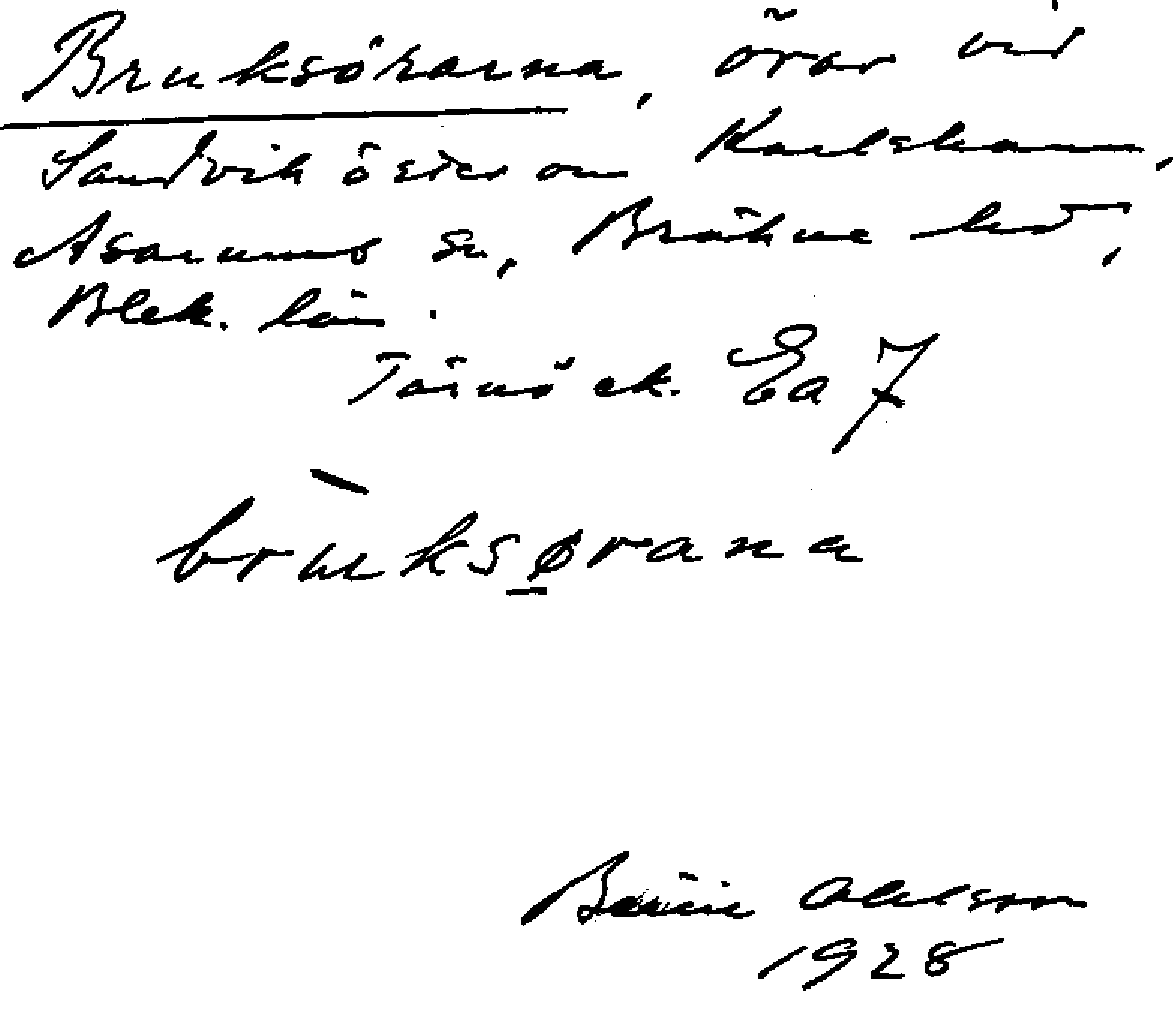 Bruksörarna, örar vid
Sandvik öster om Karlshamn,
Asarums sn, Bräkne hd,
Blek. län.
Tärnö ek. Ea 7
brùksørana
Ohlsson
1928